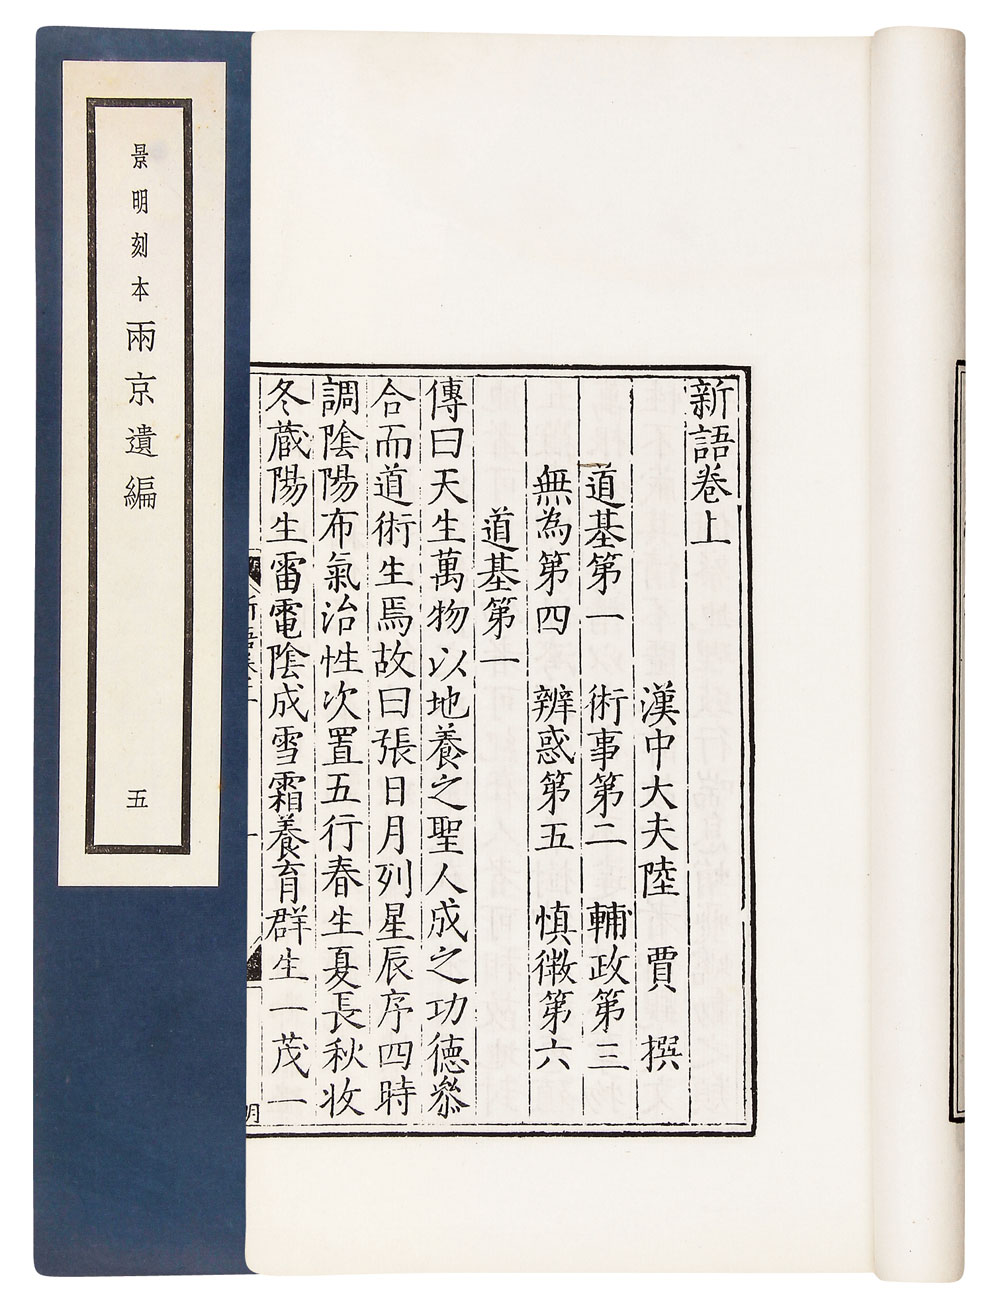 景明刻本兩京遺編
五
新語卷上
漢中大夫陸賈撰
道基第一 術事第二 輔政第三
無為第四 辨惑第五 慎微第六
道基第一
傳曰天生萬物以地養之聖人成之功德叅
合而道術生焉故曰張日月列星辰序四時
調陰陽布氣治性次置五行春生夏長秋收
冬藏陽生雷電陰成雪霜養育群生一茂一